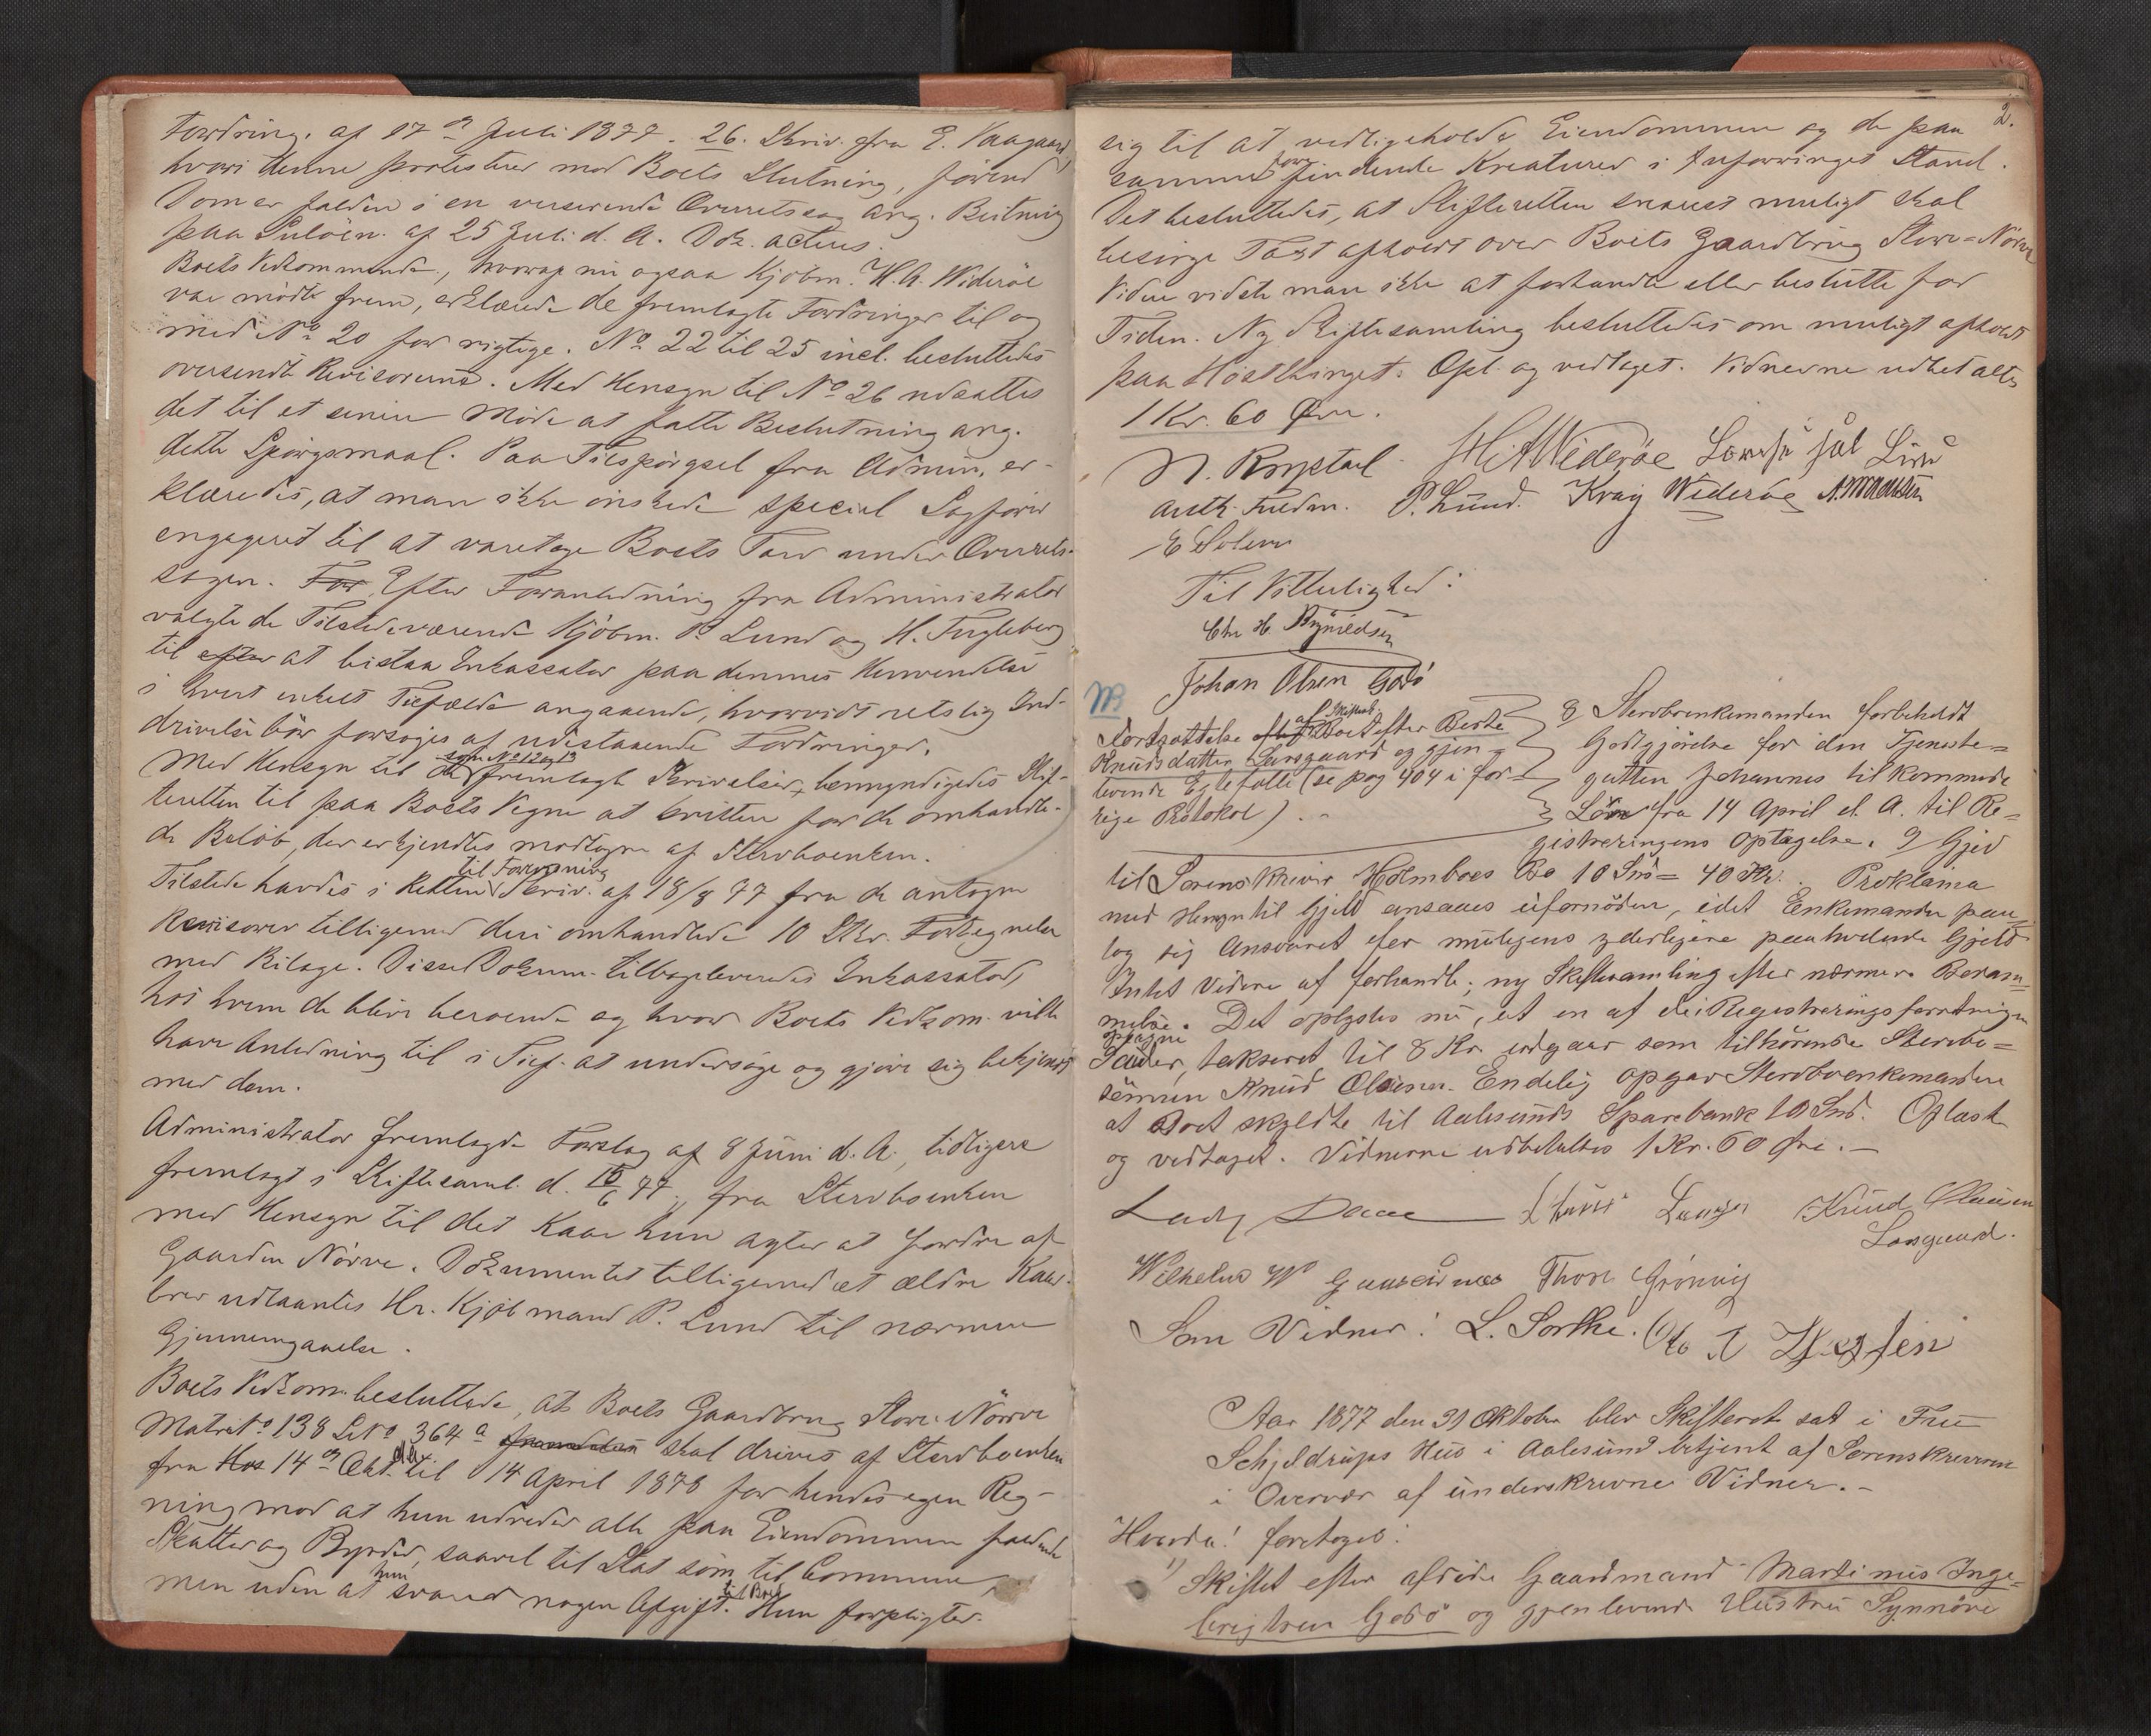 Fordring. af 17de Juli 1877. 26. Skriv. fra E. Vaagaard,
hvori denne protesterer mod Boets Slutning, förend
Dom er falden i en verserende Overretssag ang. Beitning
paa Sulöen. af 25 Juli d. A. Dok. acteres.
Boets Vedkommende, hvoraf nu ogsaa Kjöbm. H. A. Wideröe
var mödt frem, erklærede de fremlagte Fordringer til og
med No 20 for rigtige. No 22 til 25 incl. besluttedes
oversendt Revisorerne. Med Hensyn til No 26 udsattes
det til et senere Möde at fatte Beslutning ang.
dette Spörgsmaal. Paa Tilspörgsel fra Admin. er-
klæredes, at man ikke önskede speciel Sagförer
engageret til at varetage Boets Tarv under Overrets-
sagen. For Efter Foranledning fra Administrator
valgte de Tilstedeværende Kjöbm. P. Lund og H. Fugleberg
til efter at bistaa Inkassator paa dennes Henvendelse
i hvert enkelt Tilfælde angaaende, hvorvidt retslig Ind-
drivelse bör forsöges af udestaaende Fordringer.
som No 12 og 13
Med Hensyn til de fremlagte Skrivelser, bemyndigedes Skif-
teretten til paa Boets Vegne at kvittere for de omhandle-
de Belöb, der erkjendtes modtagne af Stervboenken.
til Forening
Tilstede havdes i Retten Skriv. af 18/8 77 fra de antagne
Revisorer tilligemed deri omhandlede 10 Stkr. Fortegnelser
med Bilage. Disse Dokum. tilbageleveredes Inkassator,
hos hvem de blive beroende og hvor Boets Vedkom. ville
have Anledning til i Tilf. at undersöge og gjöre sig bekjendt
med dem.
Administrator fremlagde Forslag af 8 Juni d. A., tidligere
fremlagt i Skiftesaml. d. 16/6 77, fra Stervboenken
med Hensyn til det Kaar hun agter at fordre af
Gaarden Nörve. Dokumentet tilligemed et ældre Kaar-
brev udlaantes Hr. Kjöbmand P. Lund til nærmere
Gjennemgaaelse.
Boets Vedkom. besluttede, at Boets Gaardbrug Store-Nörve
Matr. No 138 L. No 364a fremdeles skal drives af Stervboenken
fra Hos 14de Okt. d. A. til 14 April 1878 for hendes egen Reg-
ning mod at hun udreder alle paa Eiendommen faldende
Skatter og Byrder, saavel til Stat som til Commune,
hun til Boet
men uden at svare nogen Afgift. Hun forpligter
2.
sig til at vedligeholde Eiendommen og de paa
fore
samme findende Kreaturer i uforringet Stand.
Det besluttedes, at Skifteretten snarest muligt skal
besörge Taxt afholdt over Boets Gaardbrug Store-Nörve
Videre vidste man ikke at forhandle eller beslutte for
Tiden. Ny Skiftesamling besluttedes om muligt afholdt
paa Hösthinget. Opl. og vedtaget. Vidnerne udbetaltes
1 Kr. 60 Öre.
N. Rystad H A Wideröe
auth. Fuldm. P. Lund. Krag Wideröe
E Solem
Til Vitterlighed:
Johan Olsen Godö
NB
af Skiftet
Fortsættelse efter Boet efter Berte
Knudsdatter Larsgaard og gjen-
levende Egtefælle (se pag 404 i for-
rige Protokol).
8, Stervboenkemanden forbeholdt
Godtgjörelse for den Tjeneste-
gutten Johannes tilkommende
Lön fra 14 April d. A. til Re-
gistreringens Optagelse. 9, Gjed
til Sorenskriver Holmboes Bo 10 Spd = 40 Kr. Proklama
med Hensyn til Gjeld ansaaes ufornöden, idet Enkemanden paa-
tog sig Ansvaret for muligens yderligere paahvilende Gjeld
Intet Videre at forhandle; ny Skiftesamling efter nærmere Beram-
melse. Det oplystes nu, at en af de i Registreringsforretningen
optagne
Sauer, takseret til 8 Kr. udgaar som tilhörende Stervbo-
sönnen Knud Olausen. Endelig opgav Stervboenkemanden
at Boet skyldte til Aalesunds Sparebank 10 Spd. Oplæst
og vedtaget. Vidnerne udbetaltes 1 Kr. 60 Öre.
Ludv Daae Knud Olausen
Larsgaard.
Wilhelm W Gaaseidnes Thore Grönvig
Som Vidner: L. Sorthe.
Aar 1877 den 31 Oktober blev Skifteret sat i Fru
Schjeldrups Hus i Aalesund betjent af Sorenskriveren
i Overvær af underskrevne Vidner.
Hvorda! foretoges:
1) Skiftet efter afdöde Gaardmand Martinus Inge-
brigtsen Godö og gjenlevende Hustru Synnöve